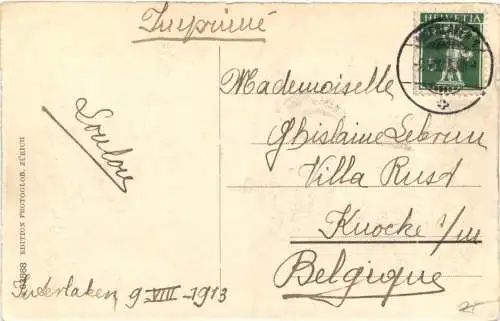 Imprimé
HELVETIA
Mademoiselle
Ghislaine Lebrun
Villa Rust
Knocke s/m
Belgique
Loulou
EDITION PHOTOGLOB. ZÜRICH
Interlaken 9-VIII-1913